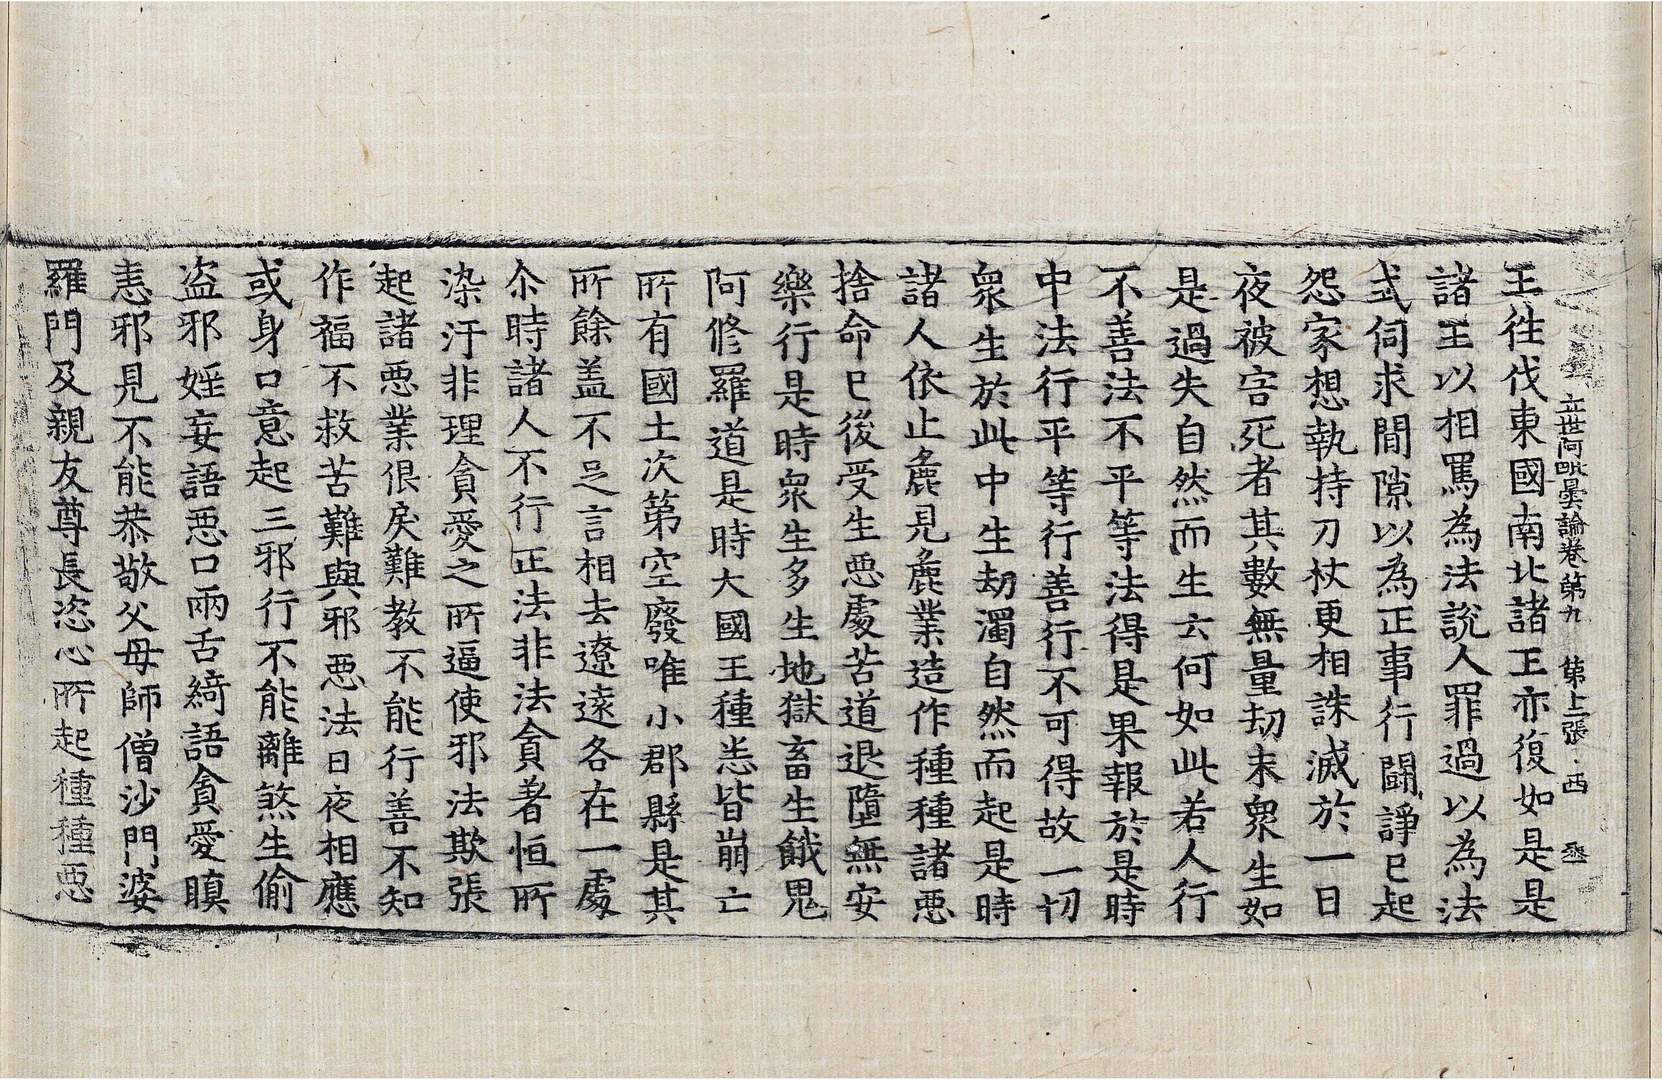 立世阿毗曇論卷第九 第上張 西
王往伐東國南北諸王亦復如是是
諸王以相罵為法說人罪過以為法
式伺求間隙以為正事行鬪諍已起
怨家想執持刀杖更相誅滅於一日
夜被害死者其數無量劫末衆生如
是過失自然而生云何如此若人行
不善法不平等法得是果報於是時
中法行平等行善行不可得故一切
衆生於此中生劫濁自然而起是時
諸人依止麁見麁業造作種種諸惡
捨命已後受生惡處苦道退墮無安
樂行是時衆生多生地獄畜生餓鬼
阿修羅道是時大國王種悉皆崩亡
所有國土次第空廢唯小郡縣是其
所餘盖不足言相去遼遠各在一處
尒時諸人不行正法非法貪著恒所
染汙非理貪愛之所逼使邪法欺張
起諸惡業佷戾難教不能行善不知
作福不救苦難與邪惡法日夜相應
或身口意起三邪行不能離煞生偷
盗邪婬妄語惡口兩舌綺語貪愛瞋
恚邪見不能恭敬父母師僧沙門婆
羅門及親友尊長恣心所起種種惡